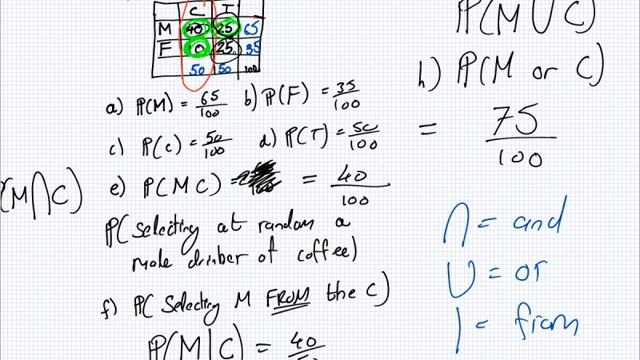 C T
M 40 25 65
F 10 25 35
50 50 100
a) P(M) = 65/100 b) P(F) = 35/100
c) P(c) = 50/100 d) P(T) = 50/100
e) P(M C) = = 40/100
(M∩C)
P( selecting at random a
male drinker of coffee)
f) P( selecting M FROM the C)
P(M|C) = 40
P(M ∪ C)
h) P(M or C)
= 75/100
∩ = and
∪ = or
| = from